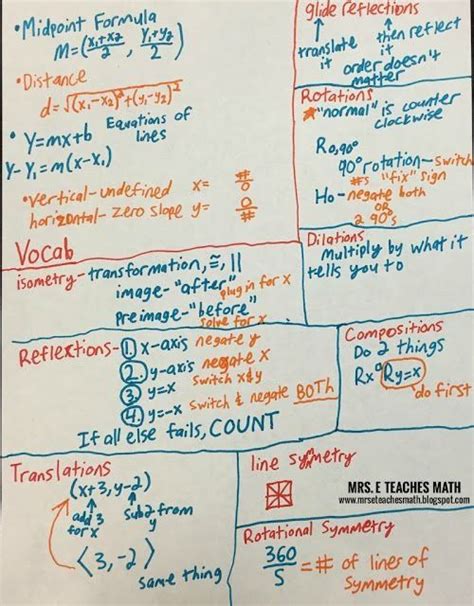 •Midpoint Formula
M=(x₁+x₂/2, y₁+y₂/2)
•Distance
d=√(x₁-x₂)²+(y₁-y₂)²
•Y=mx+b Equations of lines
Y-Y₁=m(x-x₁)
•vertical-undefined x= #/0
horizontal-zero slope y= 0/#
glide reflections
translate it
then reflect it
order doesn't matter
Rotations
*"normal" is counter clockwise
R0,90°
90° rotation-switch #s "fix" sign
Ho-negate both
OR
2 90°s
Vocab
isometry-transformation, ≅, ||
image-"after" plug in for x
preimage-"before" solve for x
Dilations
Multiply by what it tells you to
Reflections-1. x-axis negate y
2. y-axis negate x
3. y=x switch x&y
4. y=-x switch & negate BOTH
If all else fails, COUNT
Compositions
Do 2 things
Rx°Ry=x
do first
Translations
(x+3, y-2)
add 3 for x
sub 2 from y
⟨3,-2⟩
same thing
line symmetry
MRS. E TEACHES MATH
www.mrseteachesmath.blogspot.com
Rotational Symmetry
360/S = # of lines of symmetry